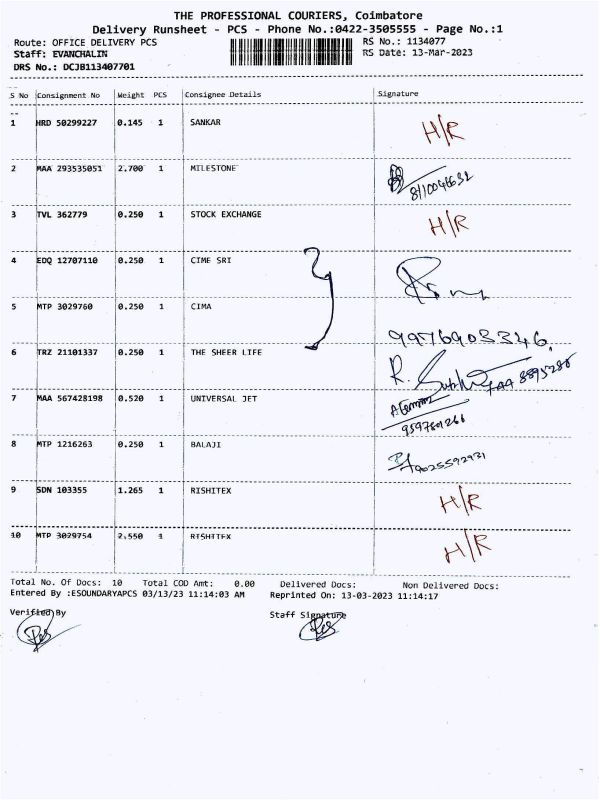 THE PROFESSIONAL COURIERS, Coimbatore
Delivery Runsheet - PCS - Phone No.:0422-3505555 - Page No.:1
Route: OFFICE DELIVERY PCS RS No.: 1134077
Staff: EVANCHALIN RS Date: 13-Mar-2023
DRS No.: DCJB113407701
S No Consignment No Weight PCS Consignee Details Signature
1 HRD 50299227 0.145 1 SANKAR H/R
2 MAA 293535051 2.700 1 MILESTONE
3 TVL 362779 0.250 1 STOCK EXCHANGE H/R
4 EDQ 12707110 0.250 1 CIME SRI
5 MTP 3029760 0.250 1 CIMA 9976903346
6 TRZ 21101337 0.250 1 THE SHEER LIFE
7 MAA 567428198 0.520 1 UNIVERSAL JET
8 MTP 1216263 0.250 1 BALAJI 9025592931
9 SDN 103355 1.265 1 RISHITEX H/R
10 MTP 3029754 2.550 1 RISHITEX H/R
Total No. Of Docs: 10 Total COD Amt: 0.00 Delivered Docs: Non Delivered Docs:
Entered By :ESOUNDARYAPCS 03/13/23 11:14:03 AM Reprinted On: 13-03-2023 11:14:17
Verified By Staff Signature